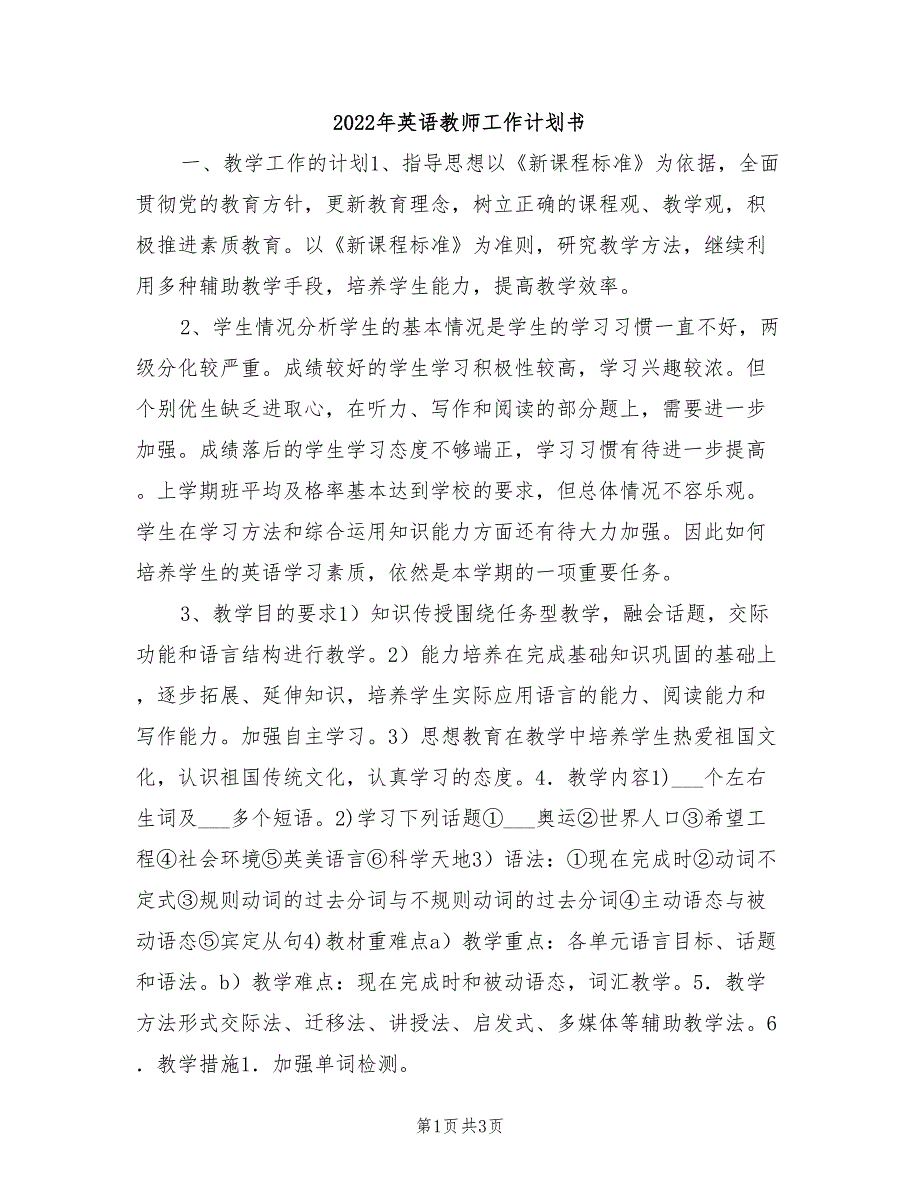 2022年英语教师工作计划书
一、教学工作的计划1、指导思想以《新课程标准》为依据，全面
贯彻党的教育方针，更新教育理念，树立正确的课程观、教学观，积
极推进素质教育。以《新课程标准》为准则，研究教学方法，继续利
用多种辅助教学手段，培养学生能力，提高教学效率。
2、学生情况分析学生的基本情况是学生的学习习惯一直不好，两
级分化较严重。成绩较好的学生学习积极性较高，学习兴趣较浓。但
个别优生缺乏进取心，在听力、写作和阅读的部分题上，需要进一步
加强。成绩落后的学生学习态度不够端正，学习习惯有待进一步提高
。上学期班平均及格率基本达到学校的要求，但总体情况不容乐观。
学生在学习方法和综合运用知识能力方面还有待大力加强。因此如何
培养学生的英语学习素质，依然是本学期的一项重要任务。
3、教学目的要求1）知识传授围绕任务型教学，融会话题，交际
功能和语言结构进行教学。2）能力培养在完成基础知识巩固的基础上
，逐步拓展、延伸知识，培养学生实际应用语言的能力、阅读能力和
写作能力。加强自主学习。3）思想教育在教学中培养学生热爱祖国文
化，认识祖国传统文化，认真学习的态度。4．教学内容1)___个左右
生词及___多个短语。2)学习下列话题①___奥运②世界人口③希望工
程④社会环境⑤英美语言⑥科学天地3）语法：①现在完成时②动词不
定式③规则动词的过去分词与不规则动词的过去分词④主动语态与被
动语态⑤宾定从句4)教材重难点a）教学重点：各单元语言目标、话题
和语法。b）教学难点：现在完成时和被动语态，词汇教学。5．教学
方法形式交际法、迁移法、讲授法、启发式、多媒体等辅助教学法。6
．教学措施1．加强单词检测。
第1页共3页